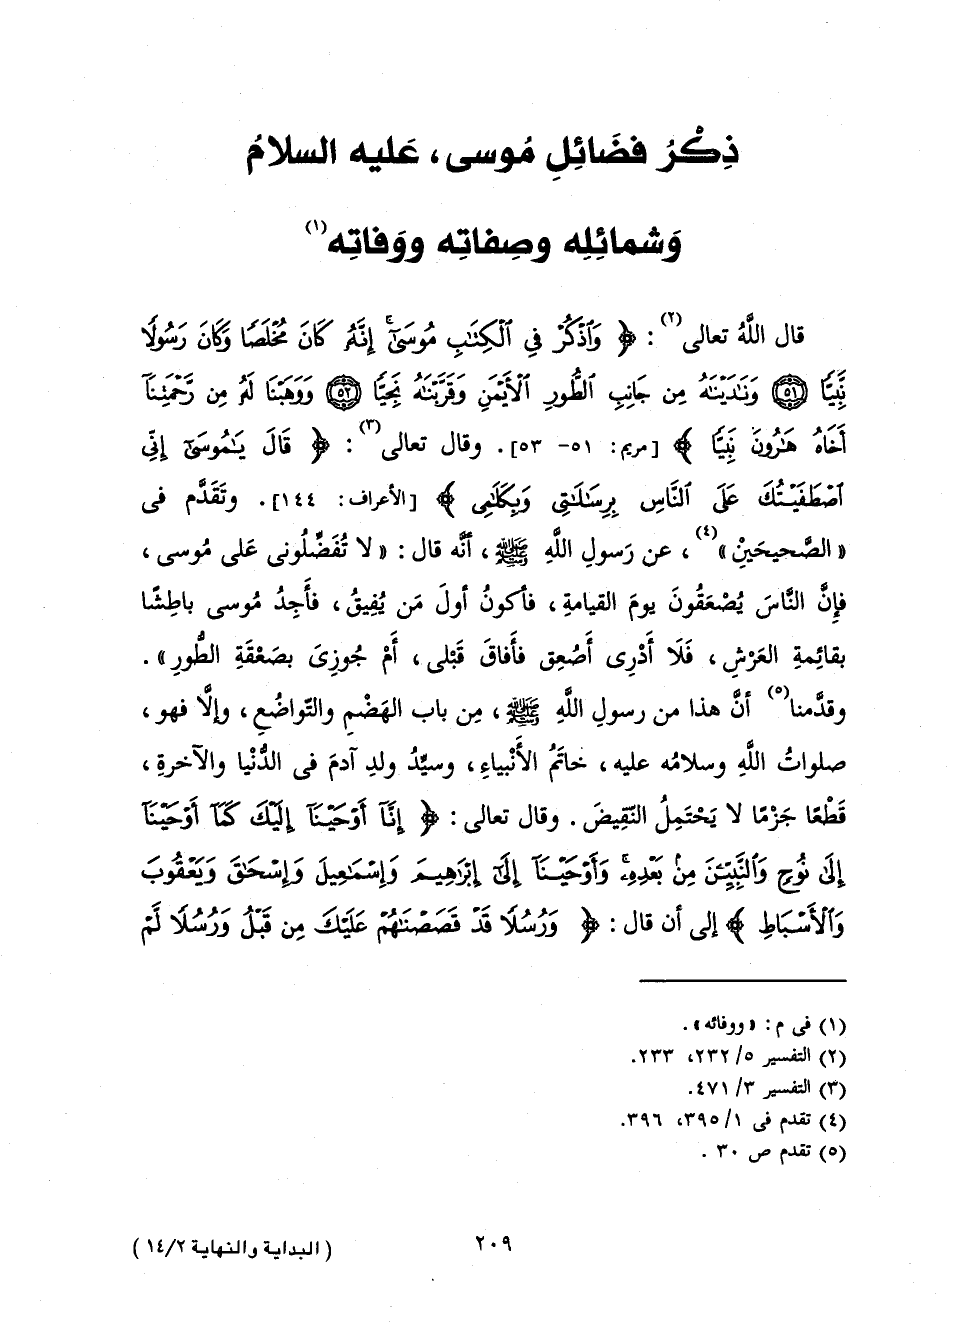 ذِكْرُ فضَائِلِ مُوسى، عَليه السلامُ
وَشمائِلِه وصِفاتِه ووَفاتِه(١)
قال اللَّهُ تعالى(٢): ﴿ وَٱذْكُرْ فِى ٱلْكِتَٰبِ مُوسَىٰٓ ۚ إِنَّهُۥ كَانَ مُخْلَصًا وَكَانَ رَسُولًا
نَّبِيًّا ۝٥١ وَنَٰدَيْنَٰهُ مِن جَانِبِ ٱلطُّورِ ٱلْأَيْمَنِ وَقَرَّبْنَٰهُ نَجِيًّا ۝٥٢ وَوَهَبْنَا لَهُۥ مِن رَّحْمَتِنَآ
أَخَاهُ هَٰرُونَ نَبِيًّا ﴾ [مريم: ٥١- ٥٣]. وقال تعالى(٣): ﴿ قَالَ يَٰمُوسَىٰٓ إِنِّى
ٱصْطَفَيْتُكَ عَلَى ٱلنَّاسِ بِرِسَٰلَٰتِى وَبِكَلَٰمِى ﴾ [الأعراف: ١٤٤]. وتَقَدَّم فى
«الصَّحيحَيْنِ»(٤)، عن رَسولِ اللَّهِ ﷺ، أنَّه قال: «لا تُفَضِّلُونى عَلى مُوسى،
فإنَّ النَّاسَ يُصْعَقُونَ يومَ القيامةِ، فأكونُ أولَ مَن يُفِيقُ، فأَجِدُ مُوسى باطِشًا
بقائِمةِ العَرْشِ، فَلَا أَدْرِى أَصُعِق فأَفاقَ قَبْلى، أَمْ جُوزِىَ بصَعْقَةِ الطُّورِ».
وقدَّمنا(٥) أنَّ هذا من رسولِ اللَّهِ ﷺ، مِن باب الهَضْمِ والتَّواضُعِ، وإلَّا فهو،
صلواتُ اللَّهِ وسلامُه عليه، خاتَمُ الأَنْبياءِ، وسيِّدُ ولدِ آدمَ فى الدُّنْيا والآخرةِ،
قَطْعًا جَزْمًا لا يَحْتمِلُ النَّقِيضَ. وقال تعالى: ﴿ إِنَّآ أَوْحَيْنَآ إِلَيْكَ كَمَآ أَوْحَيْنَآ
إِلَىٰ نُوحٍ وَٱلنَّبِيِّۦنَ مِنۢ بَعْدِهِۦ ۚ وَأَوْحَيْنَآ إِلَىٰٓ إِبْرَٰهِيمَ وَإِسْمَٰعِيلَ وَإِسْحَٰقَ وَيَعْقُوبَ
وَٱلْأَسْبَاطِ ﴾ إلى أن قال: ﴿ وَرُسُلًا قَدْ قَصَصْنَٰهُمْ عَلَيْكَ مِن قَبْلُ وَرُسُلًا لَّمْ
(١) فى م: «ووفائه».
(٢) التفسير ٥/ ٢٣٢، ٢٣٣.
(٣) التفسير ٣/ ٤٧١.
(٤) تقدم فى ١/ ٣٩٥، ٣٩٦.
(٥) تقدم ص ٣٠.
٢٠٩
(البداية والنهاية ١٤/٢)